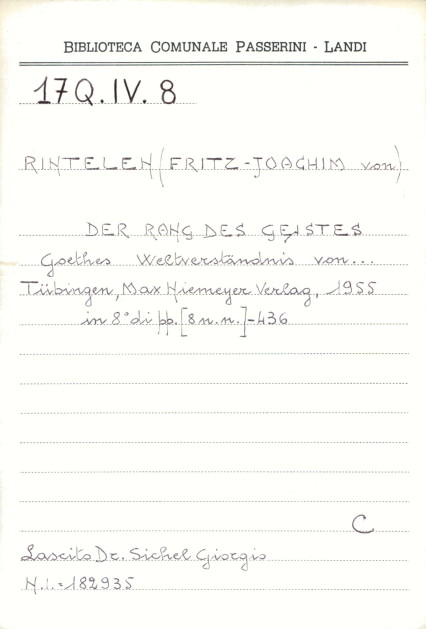 BIBLIOTECA COMUNALE PASSERINI - LANDI
17Q.IV. 8
RINTELEN (FRITZ-JOACHIM von)
DER RANG DES GEISTES
Goethes Weltverständnis von...
Tübingen, Max Niemeyer Verlag, 1955
in 8° di pp. [8 n.n.]-436
C
Lascito Dr. Sichel Giorgio
N.I.=182935